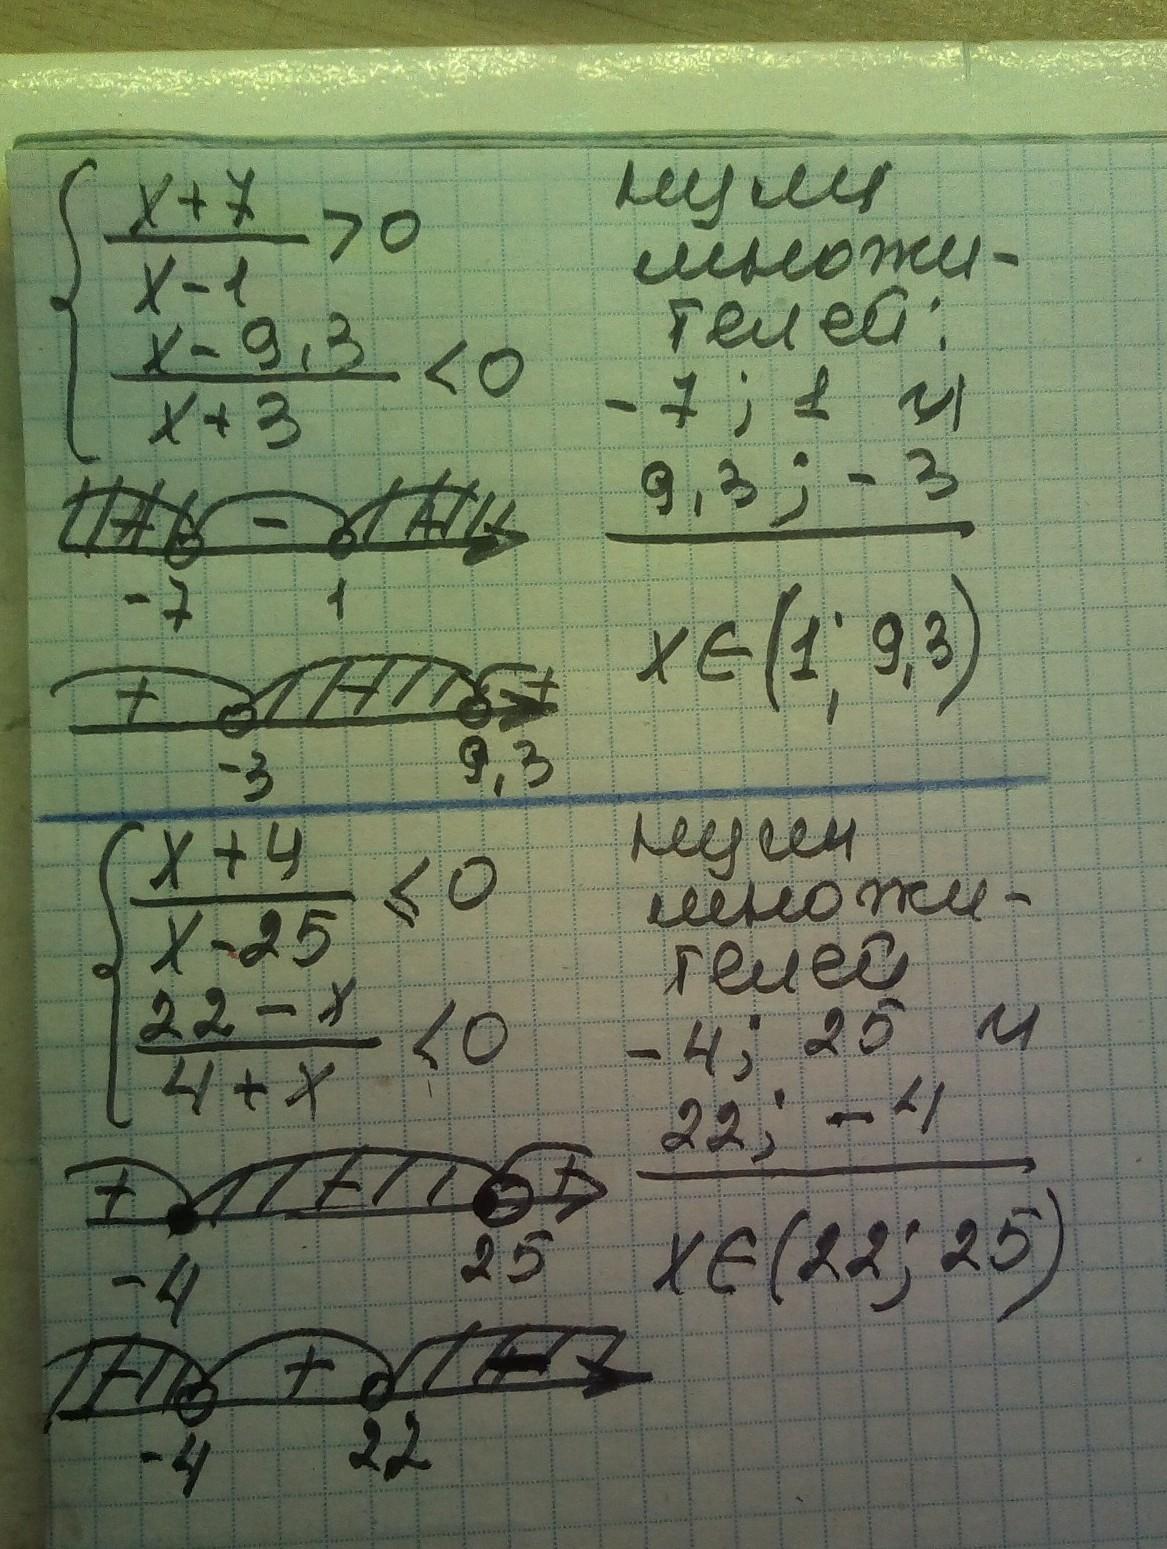 x+7 / x-1 > 0
x-9,3 / x+3 < 0
нули
множи-
телей:
-7; 1 и
9,3; -3
+ - +
-7 1
x∈(1; 9,3)
+ - +
-3 9,3
x+4 / x-25 ≤ 0
22-x / 4+x < 0
нули
множи-
телей
-4; 25 и
22; -4
+ - +
-4 25
x∈(22; 25)
- + -
-4 22